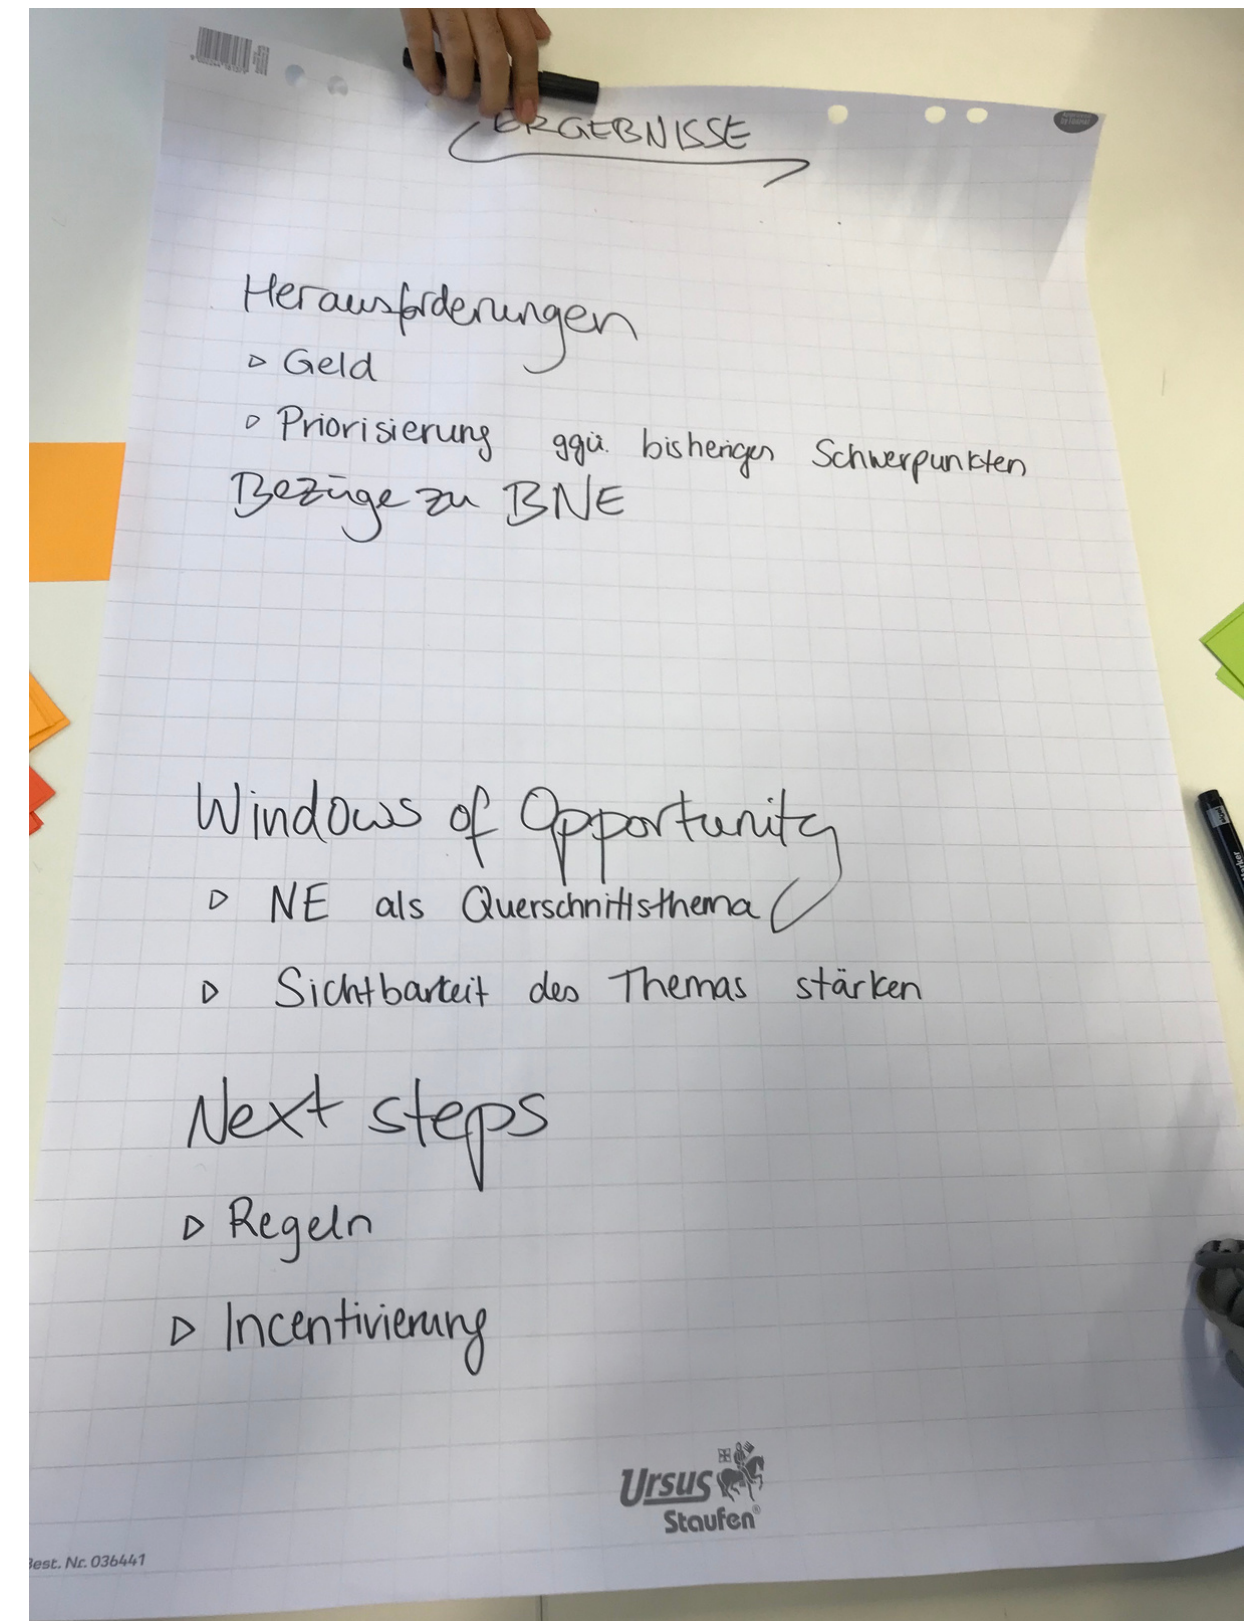 ERGEBNISSE
Herausforderungen
▷ Geld
▷ Priorisierung ggü. bisherigen Schwerpunkten
Bezüge zu BNE
Windows of Opportunity
▷ NE als Querschnittsthema
▷ Sichtbarkeit des Themas stärken
Next steps
▷ Regeln
▷ Incentivierung
Ursus
Staufen®
Best. Nr. 036441